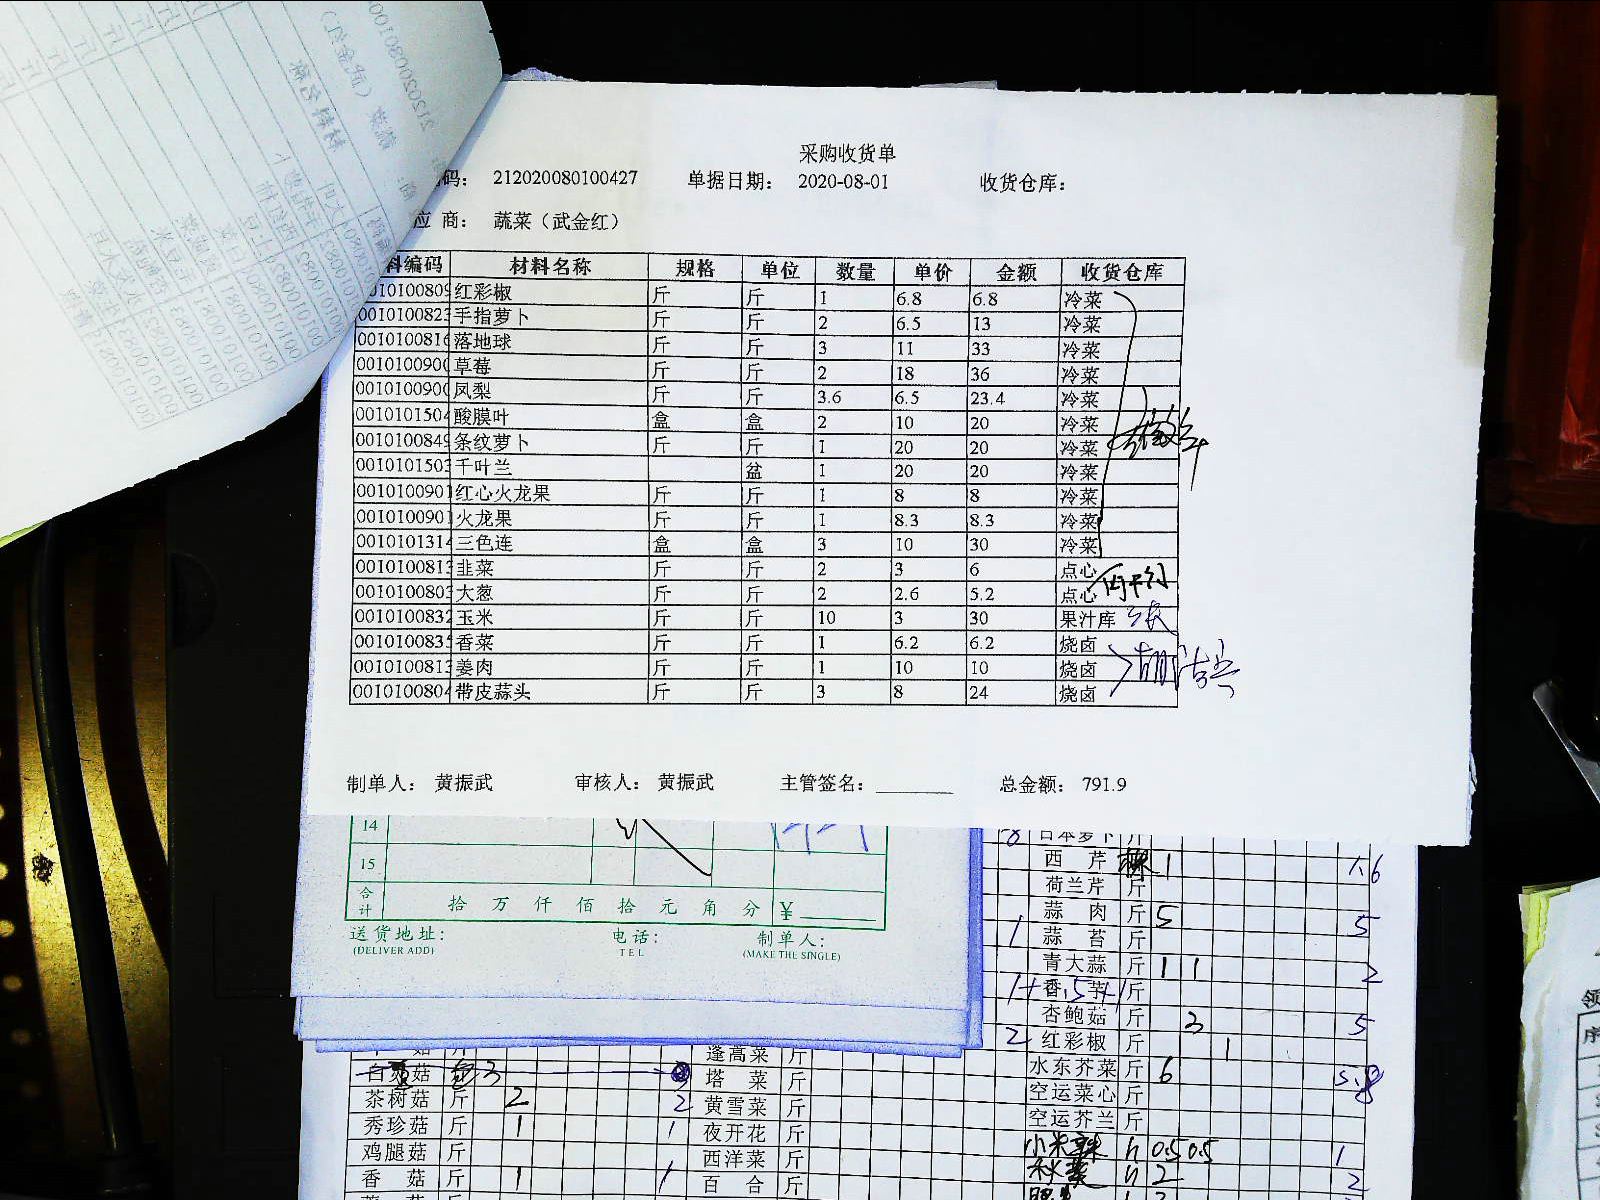 采购收货单
码： 212020080100427 单据日期： 2020-08-01 收货仓库：
应 商： 蔬菜（武金红）
料编码 材料名称 规格 单位 数量 单价 金额 收货仓库
0010100809 红彩椒 斤 斤 1 6.8 6.8 冷菜
0010100823 手指萝卜 斤 斤 2 6.5 13 冷菜
0010100816 落地球 斤 斤 3 11 33 冷菜
001010090 草莓 斤 斤 2 18 36 冷菜
001010090 凤梨 斤 斤 3.6 6.5 23.4 冷菜
0010101504 酸膜叶 盒 盒 2 10 20 冷菜
0010100849 条纹萝卜 斤 斤 1 20 20 冷菜
0010101503 千叶兰 盆 1 20 20 冷菜
0010100901 红心火龙果 斤 斤 1 8 8 冷菜
0010100901 火龙果 斤 斤 1 8.3 8.3 冷菜
0010101314 三色连 盒 盒 3 10 30 冷菜
0010100813 韭菜 斤 斤 2 3 6 点心
0010100803 大葱 斤 斤 2 2.6 5.2 点心
0010100832 玉米 斤 斤 10 3 30 果汁库
001010083 香菜 斤 斤 1 6.2 6.2 烧卤
0010100813 姜肉 斤 斤 1 10 10 烧卤
0010100804 带皮蒜头 斤 斤 3 8 24 烧卤
制单人： 黄振武 审核人： 黄振武 主管签名： 总金额： 791.9
14
15
合计 拾 万 仟 佰 拾 元 角 分 ¥
送货地址： 电话： 制单人：
(DELIVER ADD) TEL (MAKE THE SINGLE)
日本萝卜 斤
西 芹 1 1.6
荷兰芹 斤
蒜 肉 斤 5 5
1 蒜 苔 斤
青大蒜 斤 1 1 2
香 芋 斤
杏鲍菇 斤 3 5
2 红彩椒 斤 1
水东芥菜 斤 6 5.8
空运菜心 斤
空运芥兰 斤
小米辣 0.5 0.5 1
秋葵 2 2
蓬蒿菜 斤
白灵菇 3 塔 菜 斤
茶树菇 斤 2 2 黄雪菜 斤
秀珍菇 斤 1 1 夜开花 斤
鸡腿菇 斤 西洋菜 斤
香 菇 斤 1 1 百 合 斤